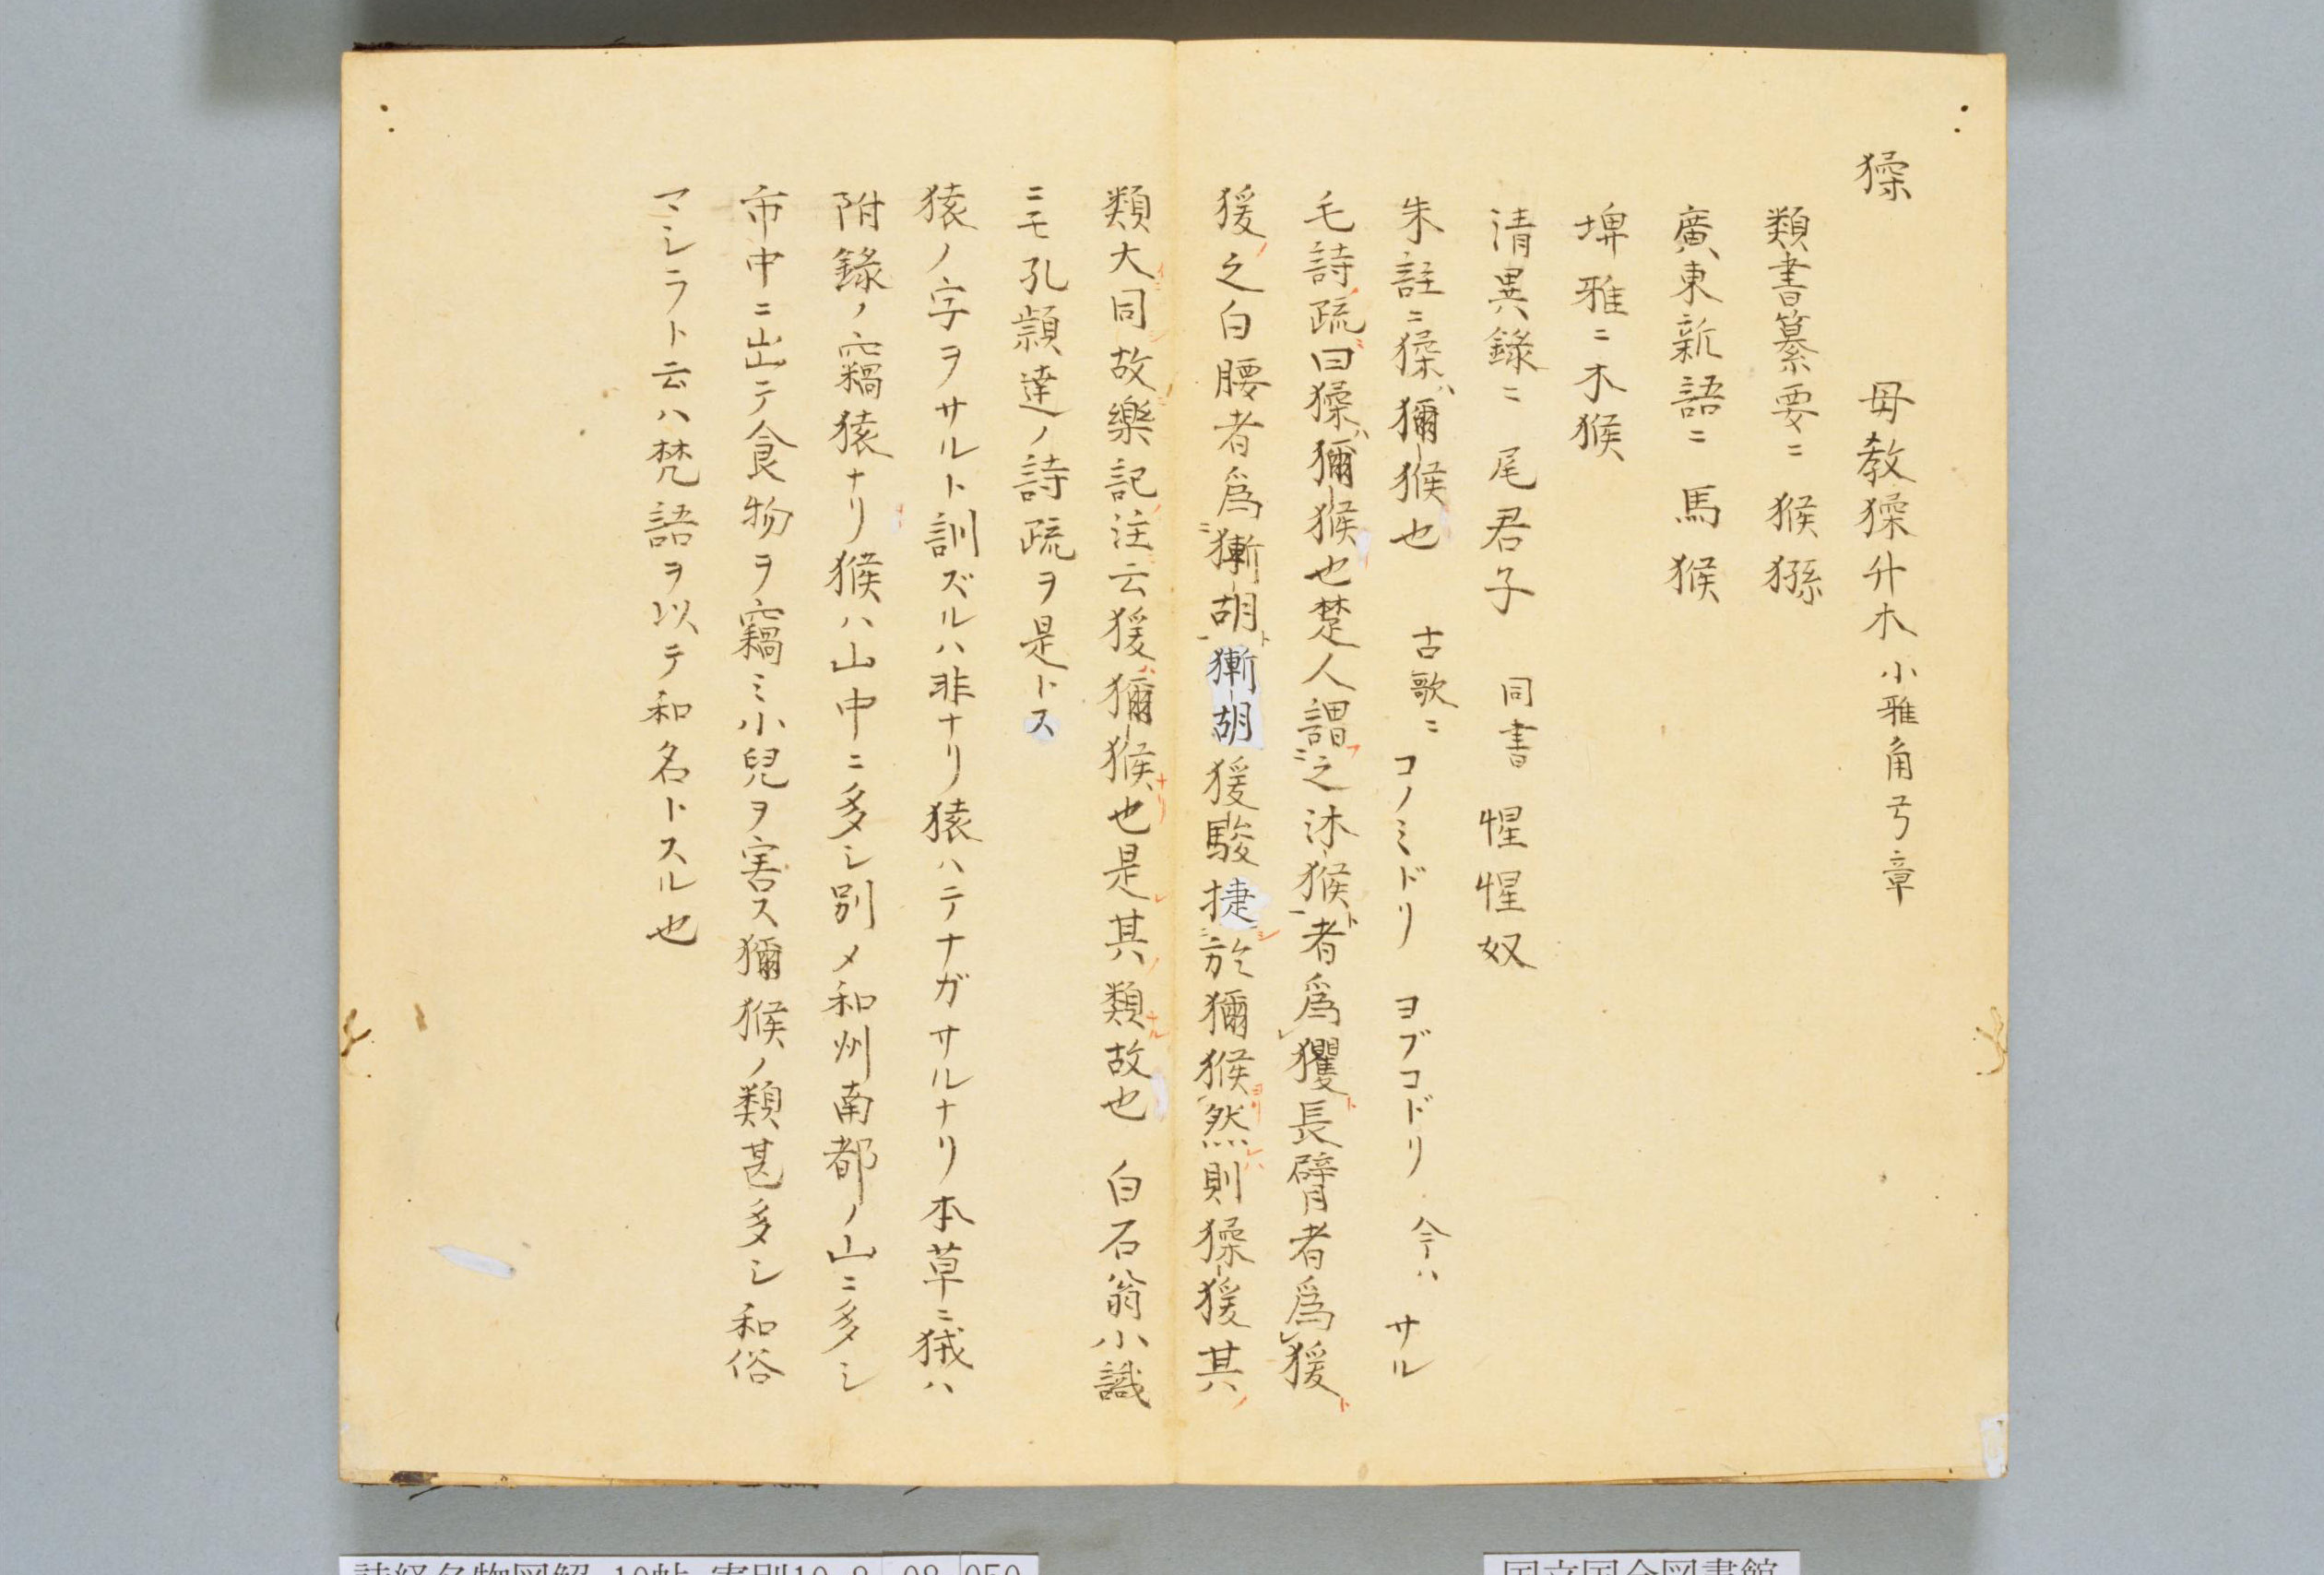 猱　毋教猱升木 小雅角弓章
類書纂要ニ 猴猻
廣東新語ニ 馬猴
埤雅ニ木猴
清異錄ニ 尾君子 同書 惺惺奴
朱註ニ猱ハ獼猴也 古歌ニ コノミドリ ヨブコドリ 今ハ サル
毛詩疏曰猱ハ獼猴也楚人謂之沐猴者爲玃長臂者爲猨
猨之白腰者爲獑胡獑胡猨駿捷於獼猴然則猱猨其
類大同故樂記注云猨獼猴也是其類故也 白石翁小識
ニモ孔穎達ノ詩疏ヲ是トス
猿ノ字ヲサルト訓ズルハ非ナリ猿ハテナガサルナリ本草ニ狨ハ
附錄ノ猿ナリ猴ハ山中ニ多シ別メ和州南都ノ山ニ多シ
市中ニ出テ食物ヲ竊ミ小兒ヲ害ス獼猴ノ類甚多シ和俗
マシラト云ハ梵語ヲ以テ和名トスル也